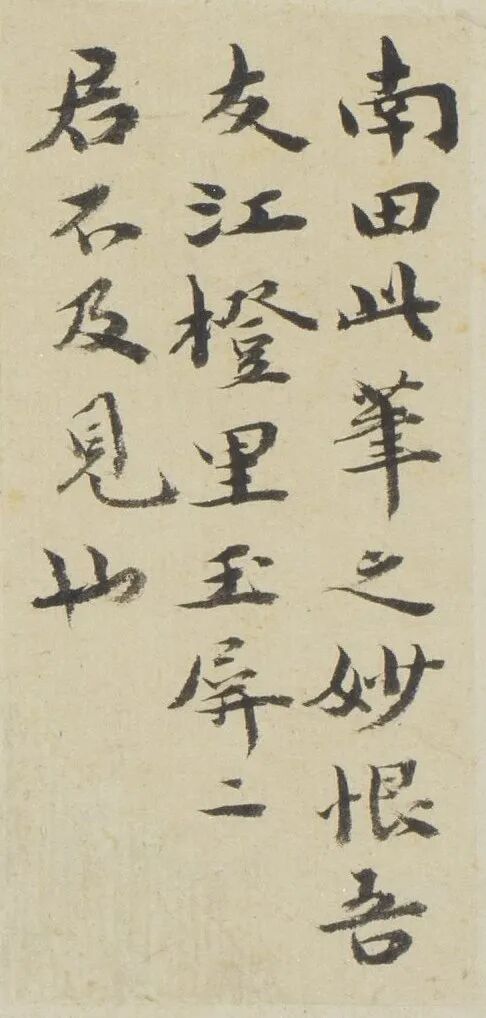 南田此筆之妙恨吾
友江橙里玉屏二
君不及見也